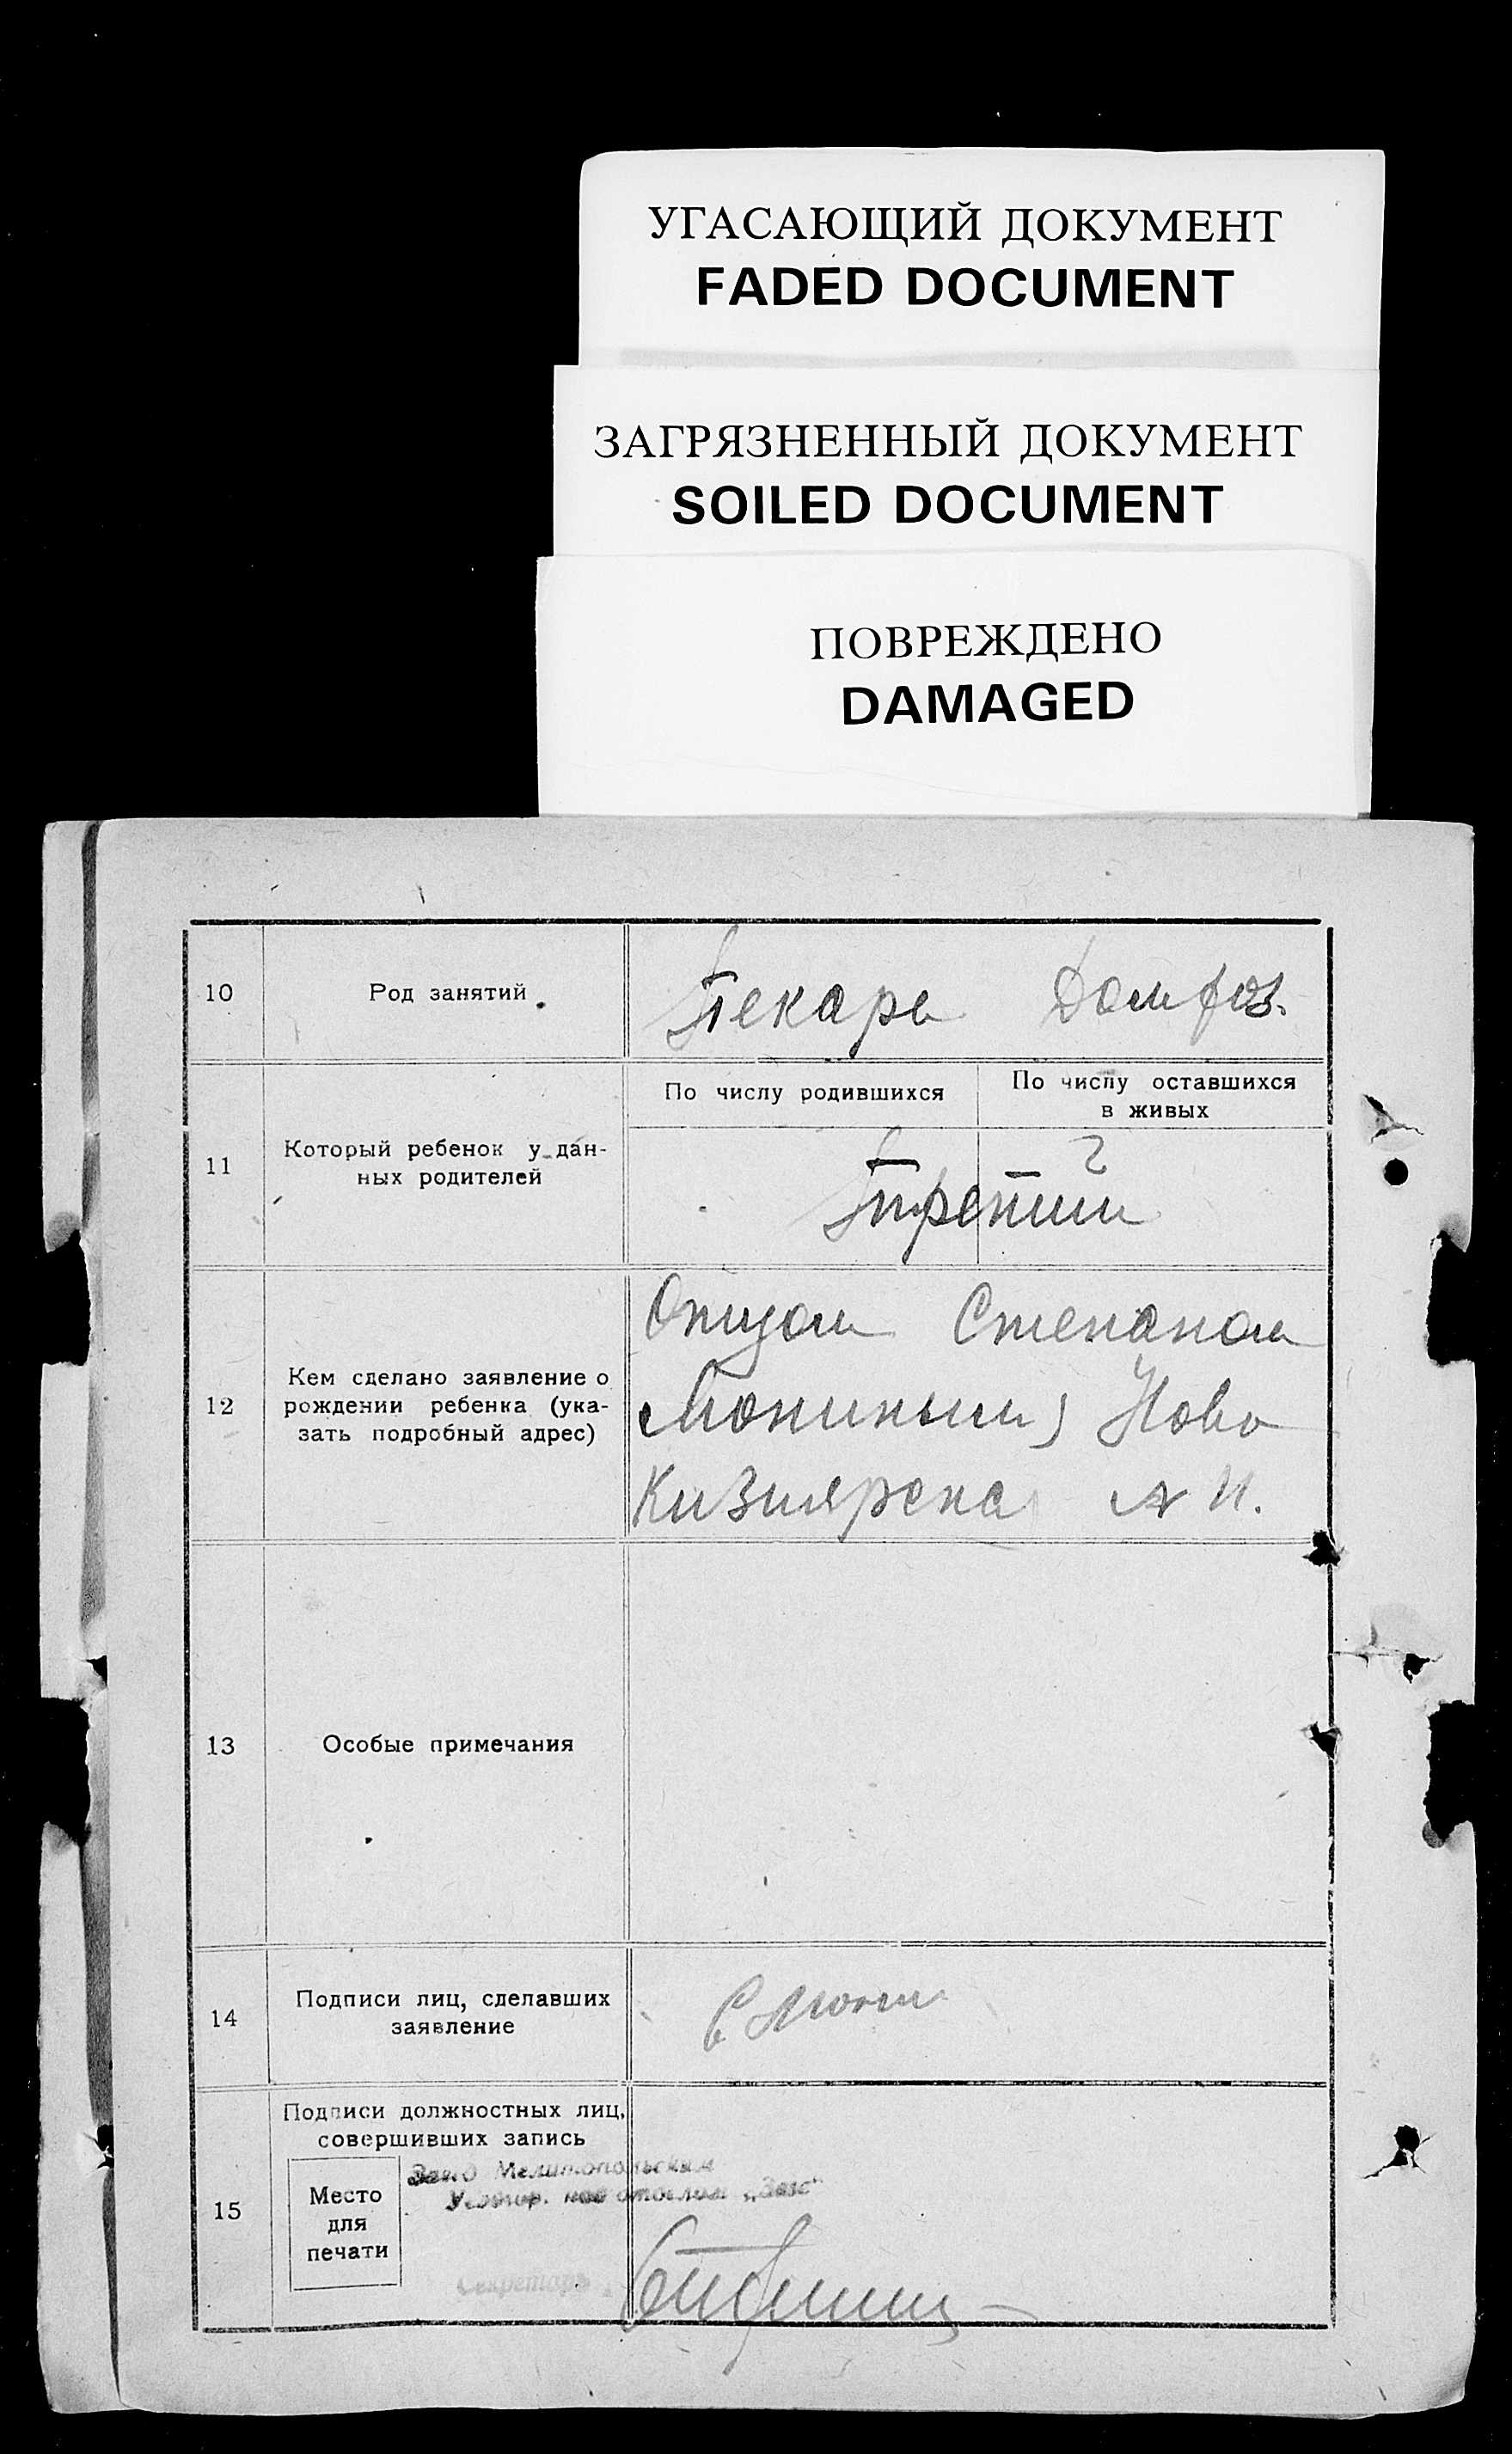 УГАСАЮЩИЙ ДОКУМЕНТ
FADED DOCUMENT
ЗАГРЯЗНЕННЫЙ ДОКУМЕНТ
SOILED DOCUMENT
ПОВРЕЖДЕНО
DAMAGED
10
Род занятий
Пекарь Дом
11
Который ребенок у дан-
ных родителей
По числу родившихся
По числу оставшихся
в живых
2
Третий
12
Кем сделано заявление о
рождении ребенка (ука-
зать подробный адрес)
Отцом Степаном
Ново
Кизиярска
13
Особые примечания
14
Подписи лиц, сделавших
заявление
15
Подписи должностных лиц,
совершивших запись
Место
для
печати
Зав. Мелитопольским
отделом „Загс“
Секретарь